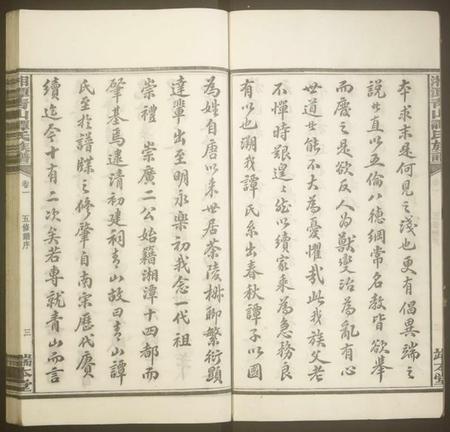 本求末是何見之淺也更有倡異端之
說者直以五倫八德綱常名教皆欲舉
而廢之是欲反人為獸變治為亂有心
世道者能不大為憂懼哉此我族父老
不憚時艱遑遑然以續家乘為急務良
有以也溯我譚氏系出春秋譚子以國
為姓自唐以來世居茶陵椒聊繁衍顯
達輩出至明永樂初我念一代祖
崇禮 崇廣二公始籍湘潭十四都而
肇基焉逮清初建祠青山故曰青山譚
氏至於譜牒之修肇自南宋歷代賡
續迄今十有二次矣若專就青山而言
湘潭青山譚氏族譜
卷一
五修譜序
三
端本堂